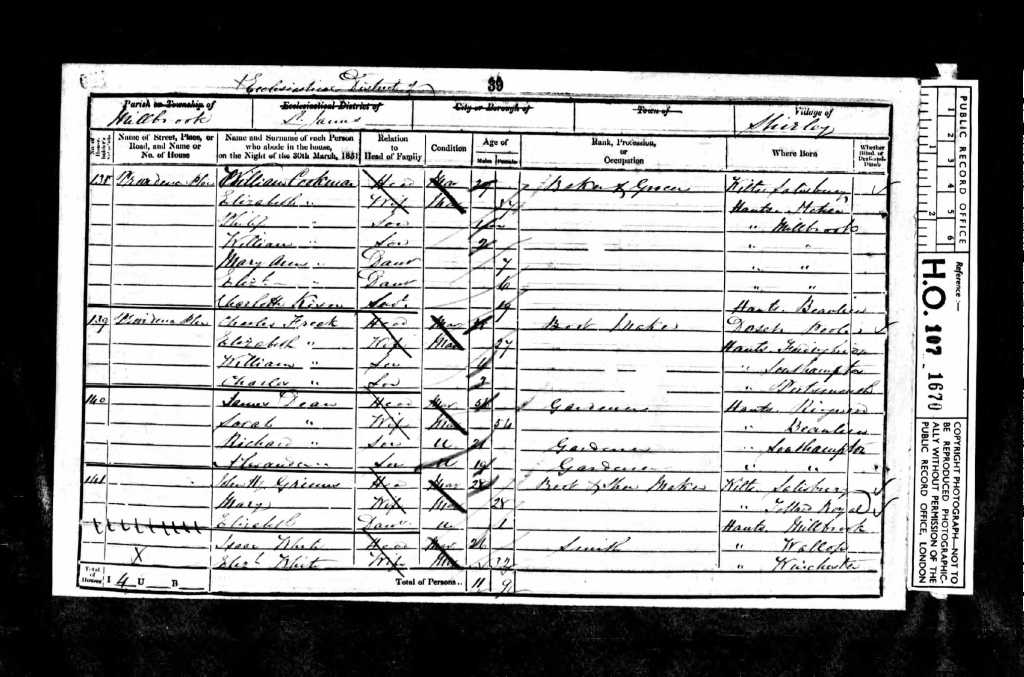 Ecclesiastical District of
39
Parish or Township of Ecclesiastical District of City or Borough of Town of Village of
Millbrook St. James Shirley
Name of Street, Place, or Road, and Name or No. of House Name and Surname of each Person who abode in the house, on the Night of the 30th March, 1851 Relation to Head of Family Condition Age of Males Females Rank, Profession, or Occupation Where Born Whether Blind, or Deaf-and-Dumb
138 Providence Place William Cookman Head Mar 39 Baker & Grocer Wilts Salisbury
Elizabeth " Wife Mar 37 Hants
Son " Millbrook
William " Son 2 " "
Mary Ann " Daur 7 " "
Elizth " Daur 6 " "
Charlotte 19 Hants Beaulieu
139 Providence Place Charles Head Mar Boot Maker Dorset Poole
Elizabeth " Wife Mar 27 Hants
William " Son 4 " Southampton
Charles " Son 2 " Portsmouth
140 James Dean Head Mar Gardener Hants
Sarah " Wife Mar 54 " Beaulieu
Richard " Son U 21 Gardener " Southampton
" Son U 19 Gardener " "
141 John W Head Mar 28 Boot & Shoe Maker Wilts Salisbury
Mary Wife Mar 28 " Tollard Royal
Elizabeth Daur U 1 Hants Millbrook
Isaac White Head Mar 26 Smith " Wallop
X Elizth White Wife Mar " Winchester
Total of Houses I 4 U B Total of Persons.. 11 9
PUBLIC RECORD OFFICE
1 2 3 4 5 6
1 2
Reference :—
H.O. 107 - 1670
COPYRIGHT PHOTOGRAPH—NOT TO
BE REPRODUCED PHOTOGRAPHIC-
ALLY WITHOUT PERMISSION OF THE
PUBLIC RECORD OFFICE, LONDON